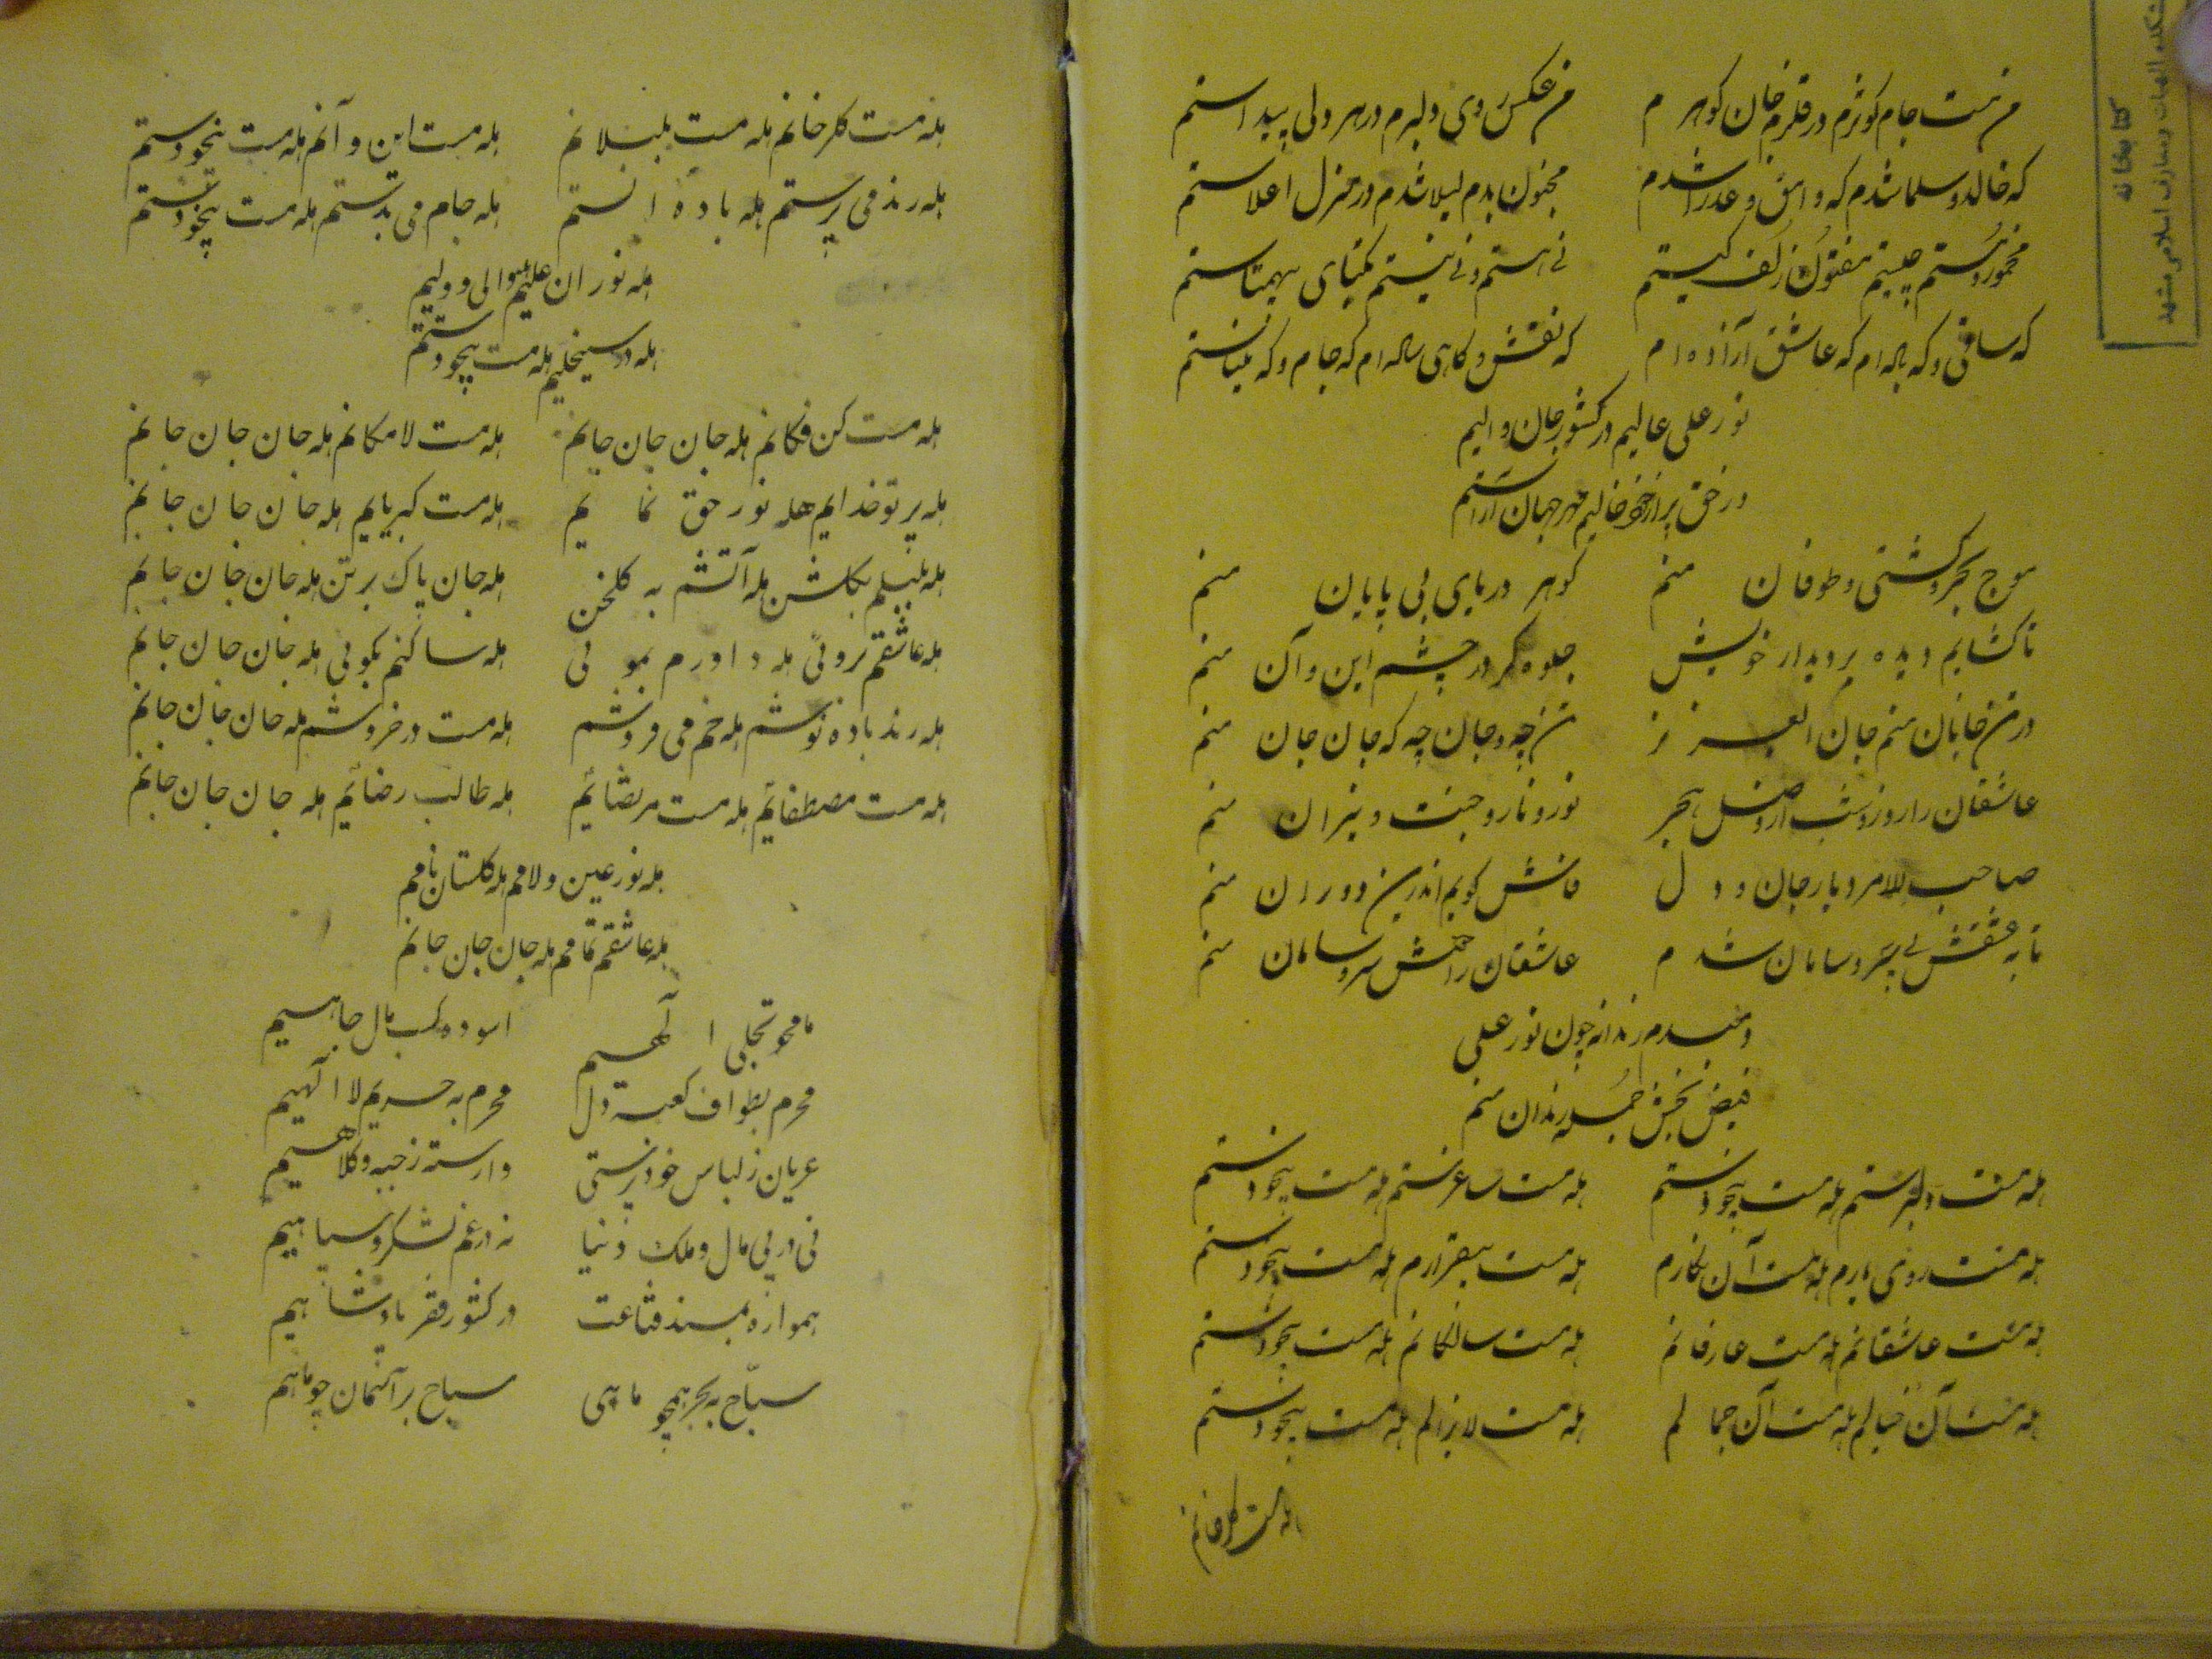 من مست جام کوثرم در قلزم جان کوهرم    من عکس روی دلبرم در هر دلی پیداستم
که خالد و سلما شدم که وامق و عذرا شدم    مجنون بدم لیلا شدم در منزل اعلاستم
مخمور و مستم چیستم مفتون زلف کیستم    نی هستم و نی نیستم یکتای بیهمتاستم
که ساقی و که باله ام که عاشق آزاده ام    که نقش و کاهی ساله ام که جام و که میناستم
نور علی عالیم در کشور جان والیم
در حق پر از خود خالیم مهر جهان آراستم
موج بحر و کشتی و طوفان منم    کوهر دریای بی پایان منم
تا کشایم دیده بر دیدار خویش    جلوه کر در چشم این و آن منم
در تن خابان منم جان العزیز    تن چه و جان چه که جان جان منم
عاشقان را روز و شب از وصل و هجر    نور و نار و جنت و نیران منم
صاحب الامر دیار جان و دل    فاش کویم اندرین دوران منم
تا به عشقش بی سر و سامان شدم    عاشقان را خوش سر و سامان منم
دمبدم رندانه چون نور علی
فیض بخش جمله رندان منم
هله مست دلبرستم هله مست بیخودستم    هله مست ساغرستم هله مست بیخودستم
هله مست روی یارم هله مست آن نکارم    هله مست بیقرارم هله مست بیخودستم
هله مست عاشقانم هله مست عارفانم    هله مست سالکانم هله مست بیخودستم
هله مست آن خیالم هله مست آن جمالم    هله مست لایزالم هله مست بیخودستم
هله مست کلرخانم
هله مست کلرخانم هله مست بلبلانم    هله مست این و آنم هله مست بیخودستم
هله رند می پرستم هله باده الستم    هله جام می بدستم هله مست بیخودستم
هله نور ان علیم هله والی و ولیم
هله در سینجلیم هله مست بیخودستم
هله مست کن فکانم هله جان جان جانم    هله مست لامکانم هله جان جان جانم
هله پرتو خدایم هله نور حق نمایم    هله مست کبریایم هله جان جان جانم
هله بلبلم بکلشن هله آتشم به کلخن    هله جان پاک بر تن هله جان جان جانم
هله عاشقم بروئی هله داورم بموئی    هله ساکنم بکوئی هله جان جان جانم
هله رند باده نوشم هله خم می فروشم    هله مست در خروشم هله جان جان جانم
هله مست مصطفائیم هله مست مرتضائیم    هله طالب رضائیم هله جان جان جانم
هله نور عین و لامم هله کلستان نامم
هله عاشقم تمامم هله جان جان جانم
ما محو تجلی الهیم    اسوده کسب مال جاهیم
محرم بطواف کعبه دل    محرم به حریم لا الهیم
عریان ز لباس خود پرستی    وارسته ز جبه و کلاهیم
نی در پی مال و ملک دنیا    نه در غم لشکر و سپاهیم
همواره بمسند قناعت    در کشور فقر پادشاهیم
سباح به بحر همچو ماهی    سیاح بر آسمان چو ماهیم
کتابخانه
دانشکده الهیات و معارف اسلامی مشهد